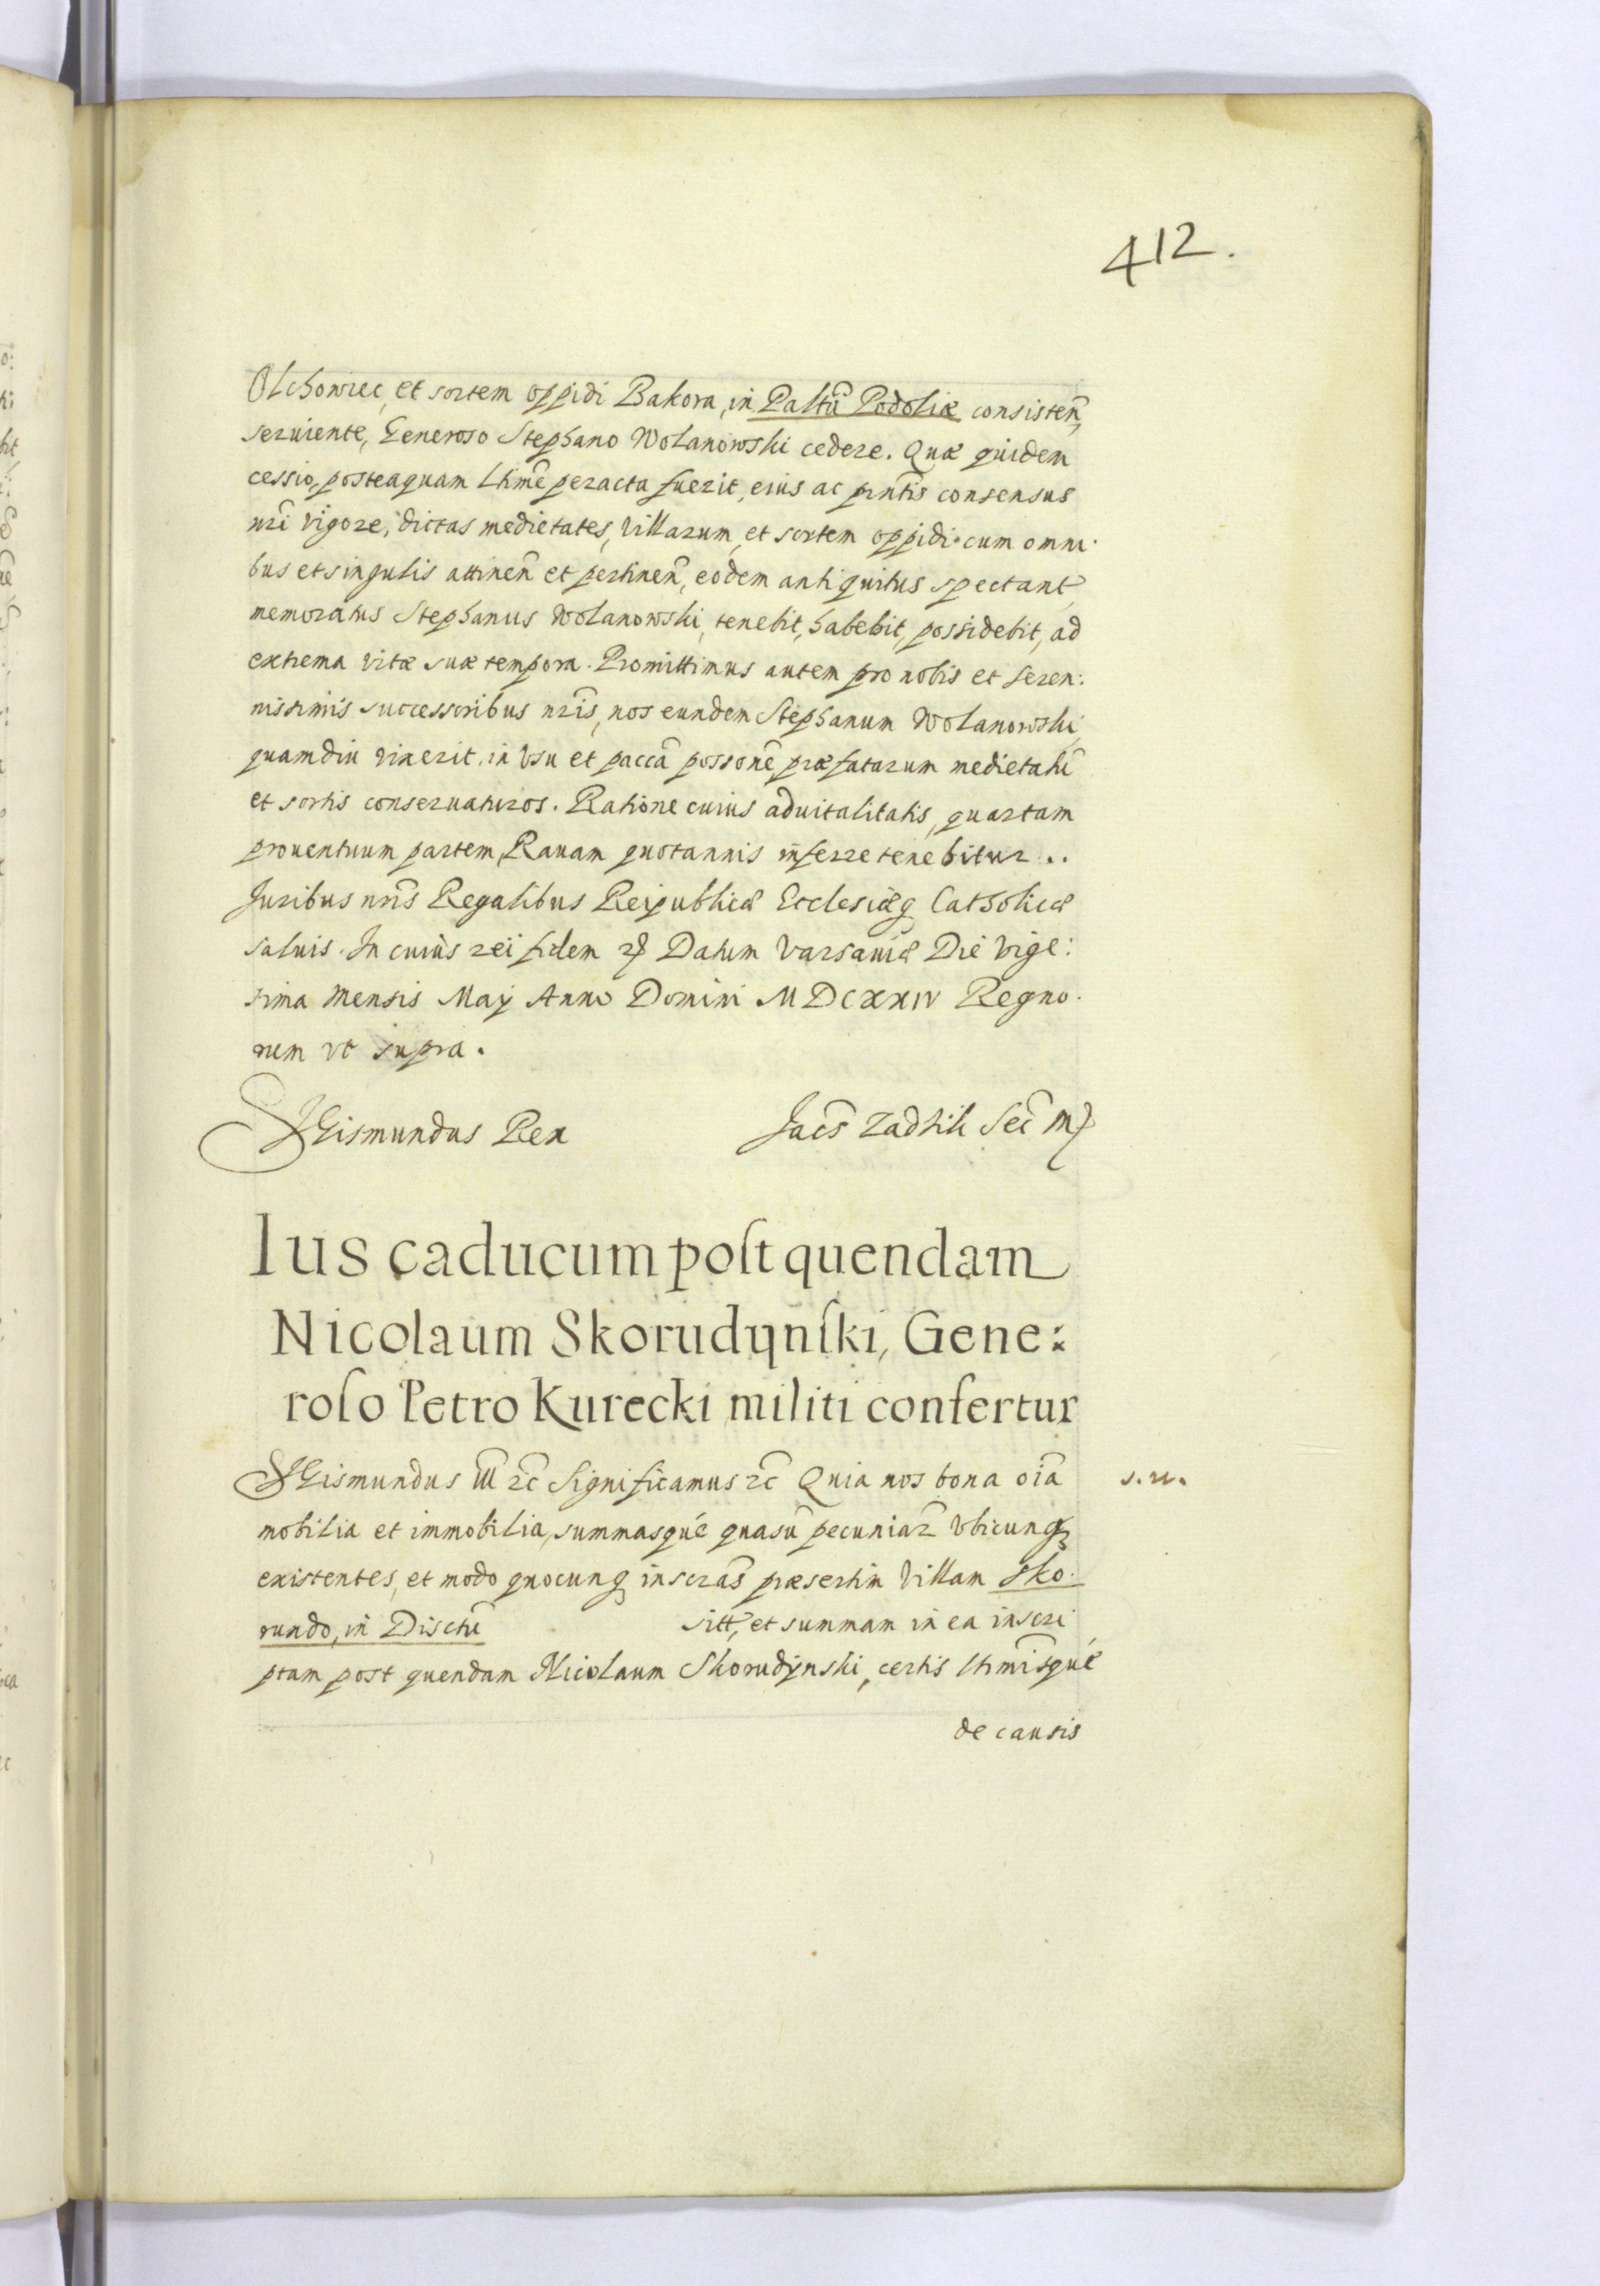 412.
Olchowiec, et sortem oppidi Bakora, in Paltũ Podoliæ consisteñ,
seruiente, Generoso Stephano Wolanowski cedere. Quæ quidem
cessio, posteaquam Ltimẽ peracta fuerit, eius ac pñtis consensus
nr̃i vigore, dictas medietates, villarum, et sortem oppidi cum omni-
bus et singulis attineñ et pertineñ, eodem antiquitus spectant
memoratus Stephanus Wolanowski, tenebit, habebit, possidebit, ad
extrema vitæ suæ tempora. Promittimus autem pro nobis et seren:
nissimis successoribus nr̃is, nos eundem Stephanum Wolanowski,
quamdiu vixerit, in vsu et paccã possonẽ præfatarum medietatũ
et sortis conseruaturos. Ratione cuius aduitalitatis, quartam
prouentuum partem, Rauam quotannis inferre tenebitur..
Juribus nr̃is Regalibus Reipublicæ Ecclesiæq Catholicæ
saluis. In cuius rei fidem &c Datum Varsauiæ Die vige:
sima Mensis Maij Anno Domini MDCXXIV Regno-
rum vt supra.
Sigismundus Rex
Jacs̃ Zadzik Sec̃ mp
Ius caducum post quendam
Nicolaum Skorudijnski, Gene:
roso Petro Kurecki militi confertur
Sigismundus III &c Significamus &c Quia nos bona oĩa
s. n.
mobilia et immobilia, summasqué quasũ pecuniar̃ vbicunq
existentes, et modo quocunq inscras̃ præsertim villam Sko-
rundo, in Disctũ sitt, et summam in ea inscri
ptam post quendam Nicolaum Skorudijnski, certis Ltimĩsqué
de causis